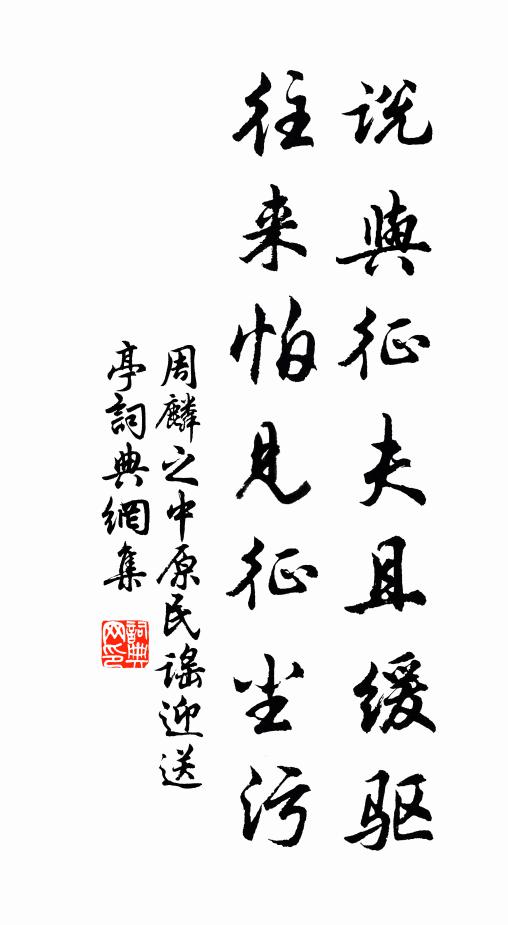 说與征夫且缓驱
往来怕见征尘污
周麟之中原民谣迎送
亭詞典網集
詞典
网印